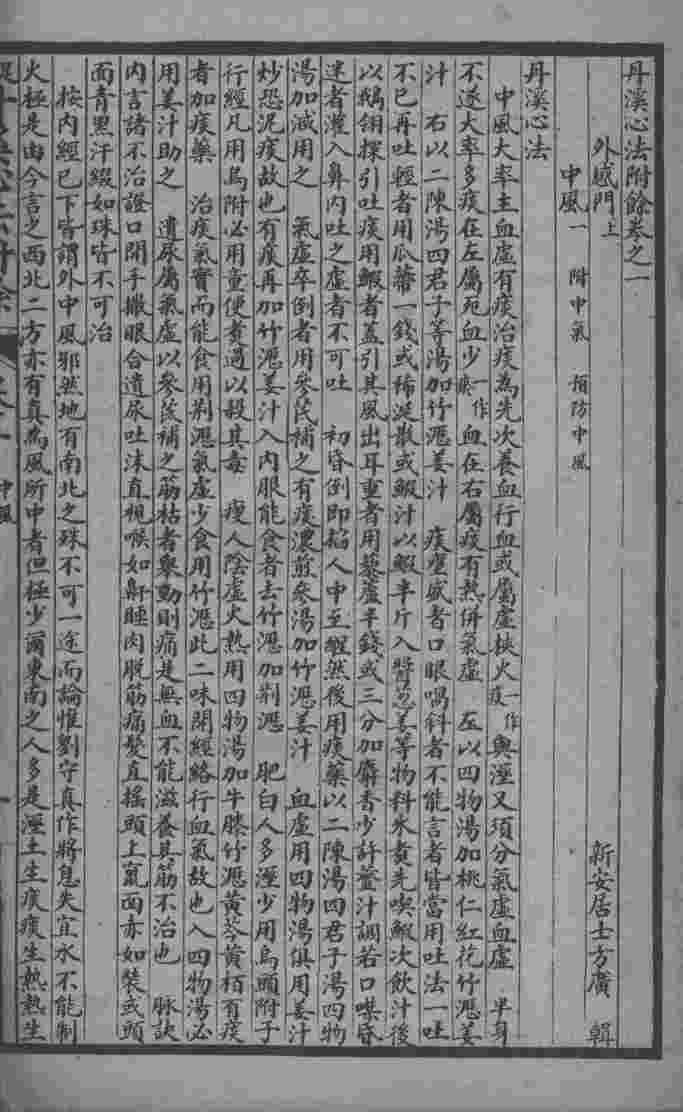 丹溪心法附餘卷之一
新安居士方廣 輯
外感門上
中風一 附中氣 預防中風
丹溪心法
中風大率主血虛有痰治痰為先次養血行血或屬虛挾火一作痰與溼又須分氣虛血虛 半身
不遂大率多痰在左屬死血少一作瘀血在右屬痰有熱併氣虛 左以四物湯加桃仁紅花竹瀝姜
汁 右以二陳湯四君子等湯加竹瀝姜汁 痰壅盛者口眼喎斜者不能言者皆當用吐法一吐
不已再吐輕者用瓜蒂一錢或稀涎散或蝦汁以蝦半斤入醬葱姜等物料水煮先喫蝦次飲汁後
以鵝翎探引吐痰用蝦者蓋引其風出耳重者用藜蘆半錢或三分加麝香少許虀汁調若口噤昏
迷者灌入鼻內吐之虛者不可吐 初昏倒即掐人中至醒然後用痰藥以二陳湯四君子湯四物
湯加減用之 氣虛卒倒者用參芪補之有痰濃煎參湯加竹瀝姜汁 血虛用四物湯俱用姜汁
炒恐泥痰故也有痰再加竹瀝姜汁入內服能食者去竹瀝加荆瀝 肥白人多溼少用烏頭附子
行經凡用烏附必用童便煮過以殺其毒 瘦人陰虛火熱用四物湯加牛膝竹瀝黃芩黃栢有痰
者加痰藥 治痰氣實而能食用荆瀝氣虛少食用竹瀝此二味開經絡行血氣故也入四物湯必
用姜汁助之 遺尿屬氣虛以參芪補之筋枯者舉動則痛是無血不能滋養其筋不治也 脉訣
內言諸不治證口開手撒眼合遺尿吐沫直視喉如鼾睡肉脫筋痛髮直搖頭上竄面赤如裝或頭
面青黑汗綴如珠皆不可治
按內經已下皆謂外中風邪然地有南北之殊不可一途而論惟劉守真作將息失宜水不能制
火極是由今言之西北二方亦有真為風所中者但極少爾東南之人多是溼土生痰痰生熱熱生
中風